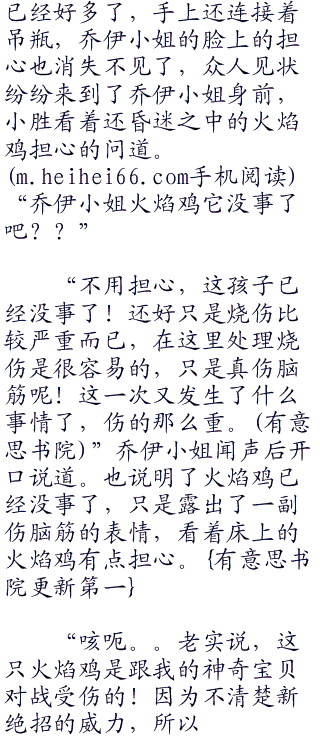 已经好多了，手上还连接着
吊瓶，乔伊小姐的脸上的担
心也消失不见了，众人见状
纷纷来到了乔伊小姐身前，
小胜看着还昏迷之中的火焰
鸡担心的问道。
(m.heihei66.com手机阅读)
“乔伊小姐火焰鸡它没事了
吧？？”
“不用担心，这孩子已
经没事了！还好只是烧伤比
较严重而已，在这里处理烧
伤是很容易的，只是真伤脑
筋呢！这一次又发生了什么
事情了，伤的那么重。(有意
思书院)”乔伊小姐闻声后开
口说道。也说明了火焰鸡已
经没事了，只是露出了一副
伤脑筋的表情，看着床上的
火焰鸡有点担心。{有意思书
院更新第一}
“咳呃。。老实说，这
只火焰鸡是跟我的神奇宝贝
对战受伤的！因为不清楚新
绝招的威力，所以